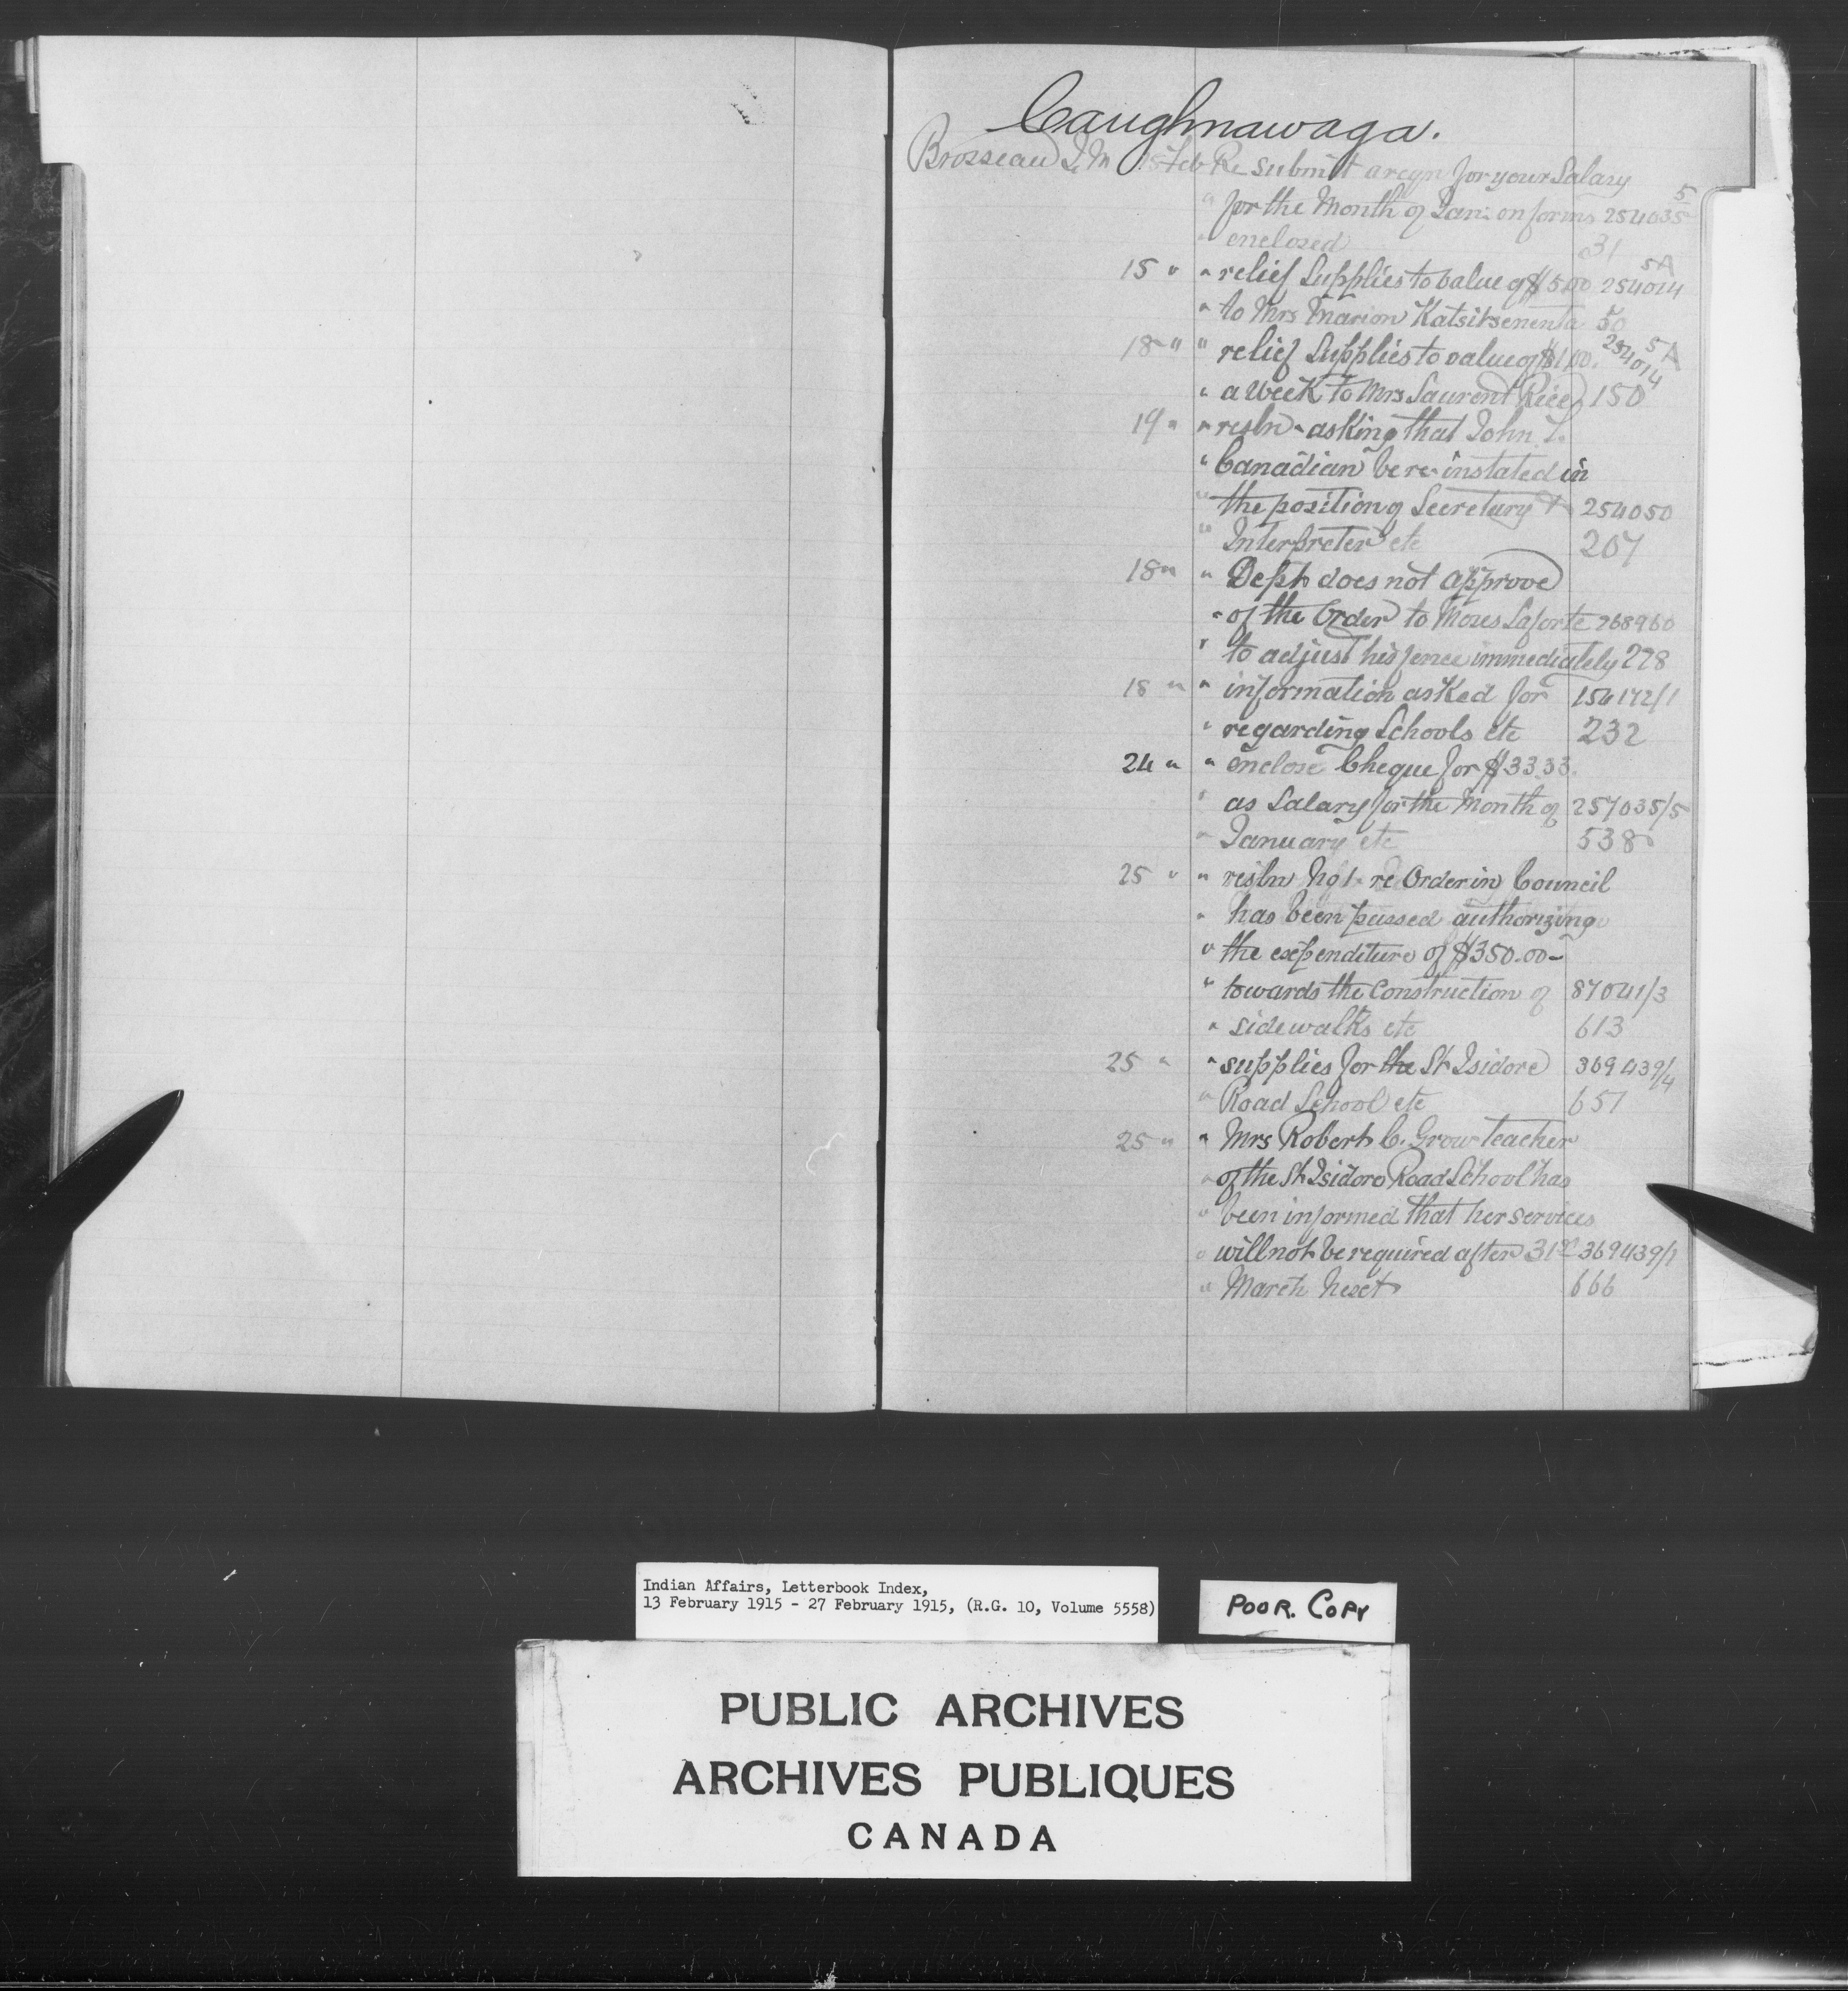 Caughnawaga.
Brosseau J. M 15 Feb Re submit a reqn for your Salary
" for the Month of Jan: on forms 254035 5
" enclosed 31
15 " " relief Supplies to value of $5.00 254014 5A
" to Mrs Marion Katsitsenenta 50
18 " " relief Supplies to value of $1.00. 254014 5A
" a week to Mrs Laurent Rice 150
19 " " resln - asking that John L.
" Canadian be re-instated in
" the position of Secretary & 254050
" Interpreter etc 207
18 " " Dept does not approve
" of the Order to Moses Laforte 268960
" to adjust his fence immediately 228
18 " " information asked for 154172/1
" regarding Schools etc 232
24 " " enclose Cheque for $33.33.
" as Salary for the Month of 257035/5
" January etc 538
25 " " resln No 1. re Order in Council
" has been passed authorizing
" the expenditure of $350.00-
" towards the construction of 87041/3
" sidewalks etc 613
25 " " supplies for the St Isidore 369439/4
" Road School etc 651
25 " " Mrs Robert C. Grow teacher
" of the St Isidore Road School has
" been informed that her services
" will not be required after 31st 369439/1
" March next 666
Indian Affairs, Letterbook Index,
13 February 1915 - 27 February 1915, (R.G. 10, Volume 5558)
POOR. COPY
PUBLIC ARCHIVES
ARCHIVES PUBLIQUES
CANADA